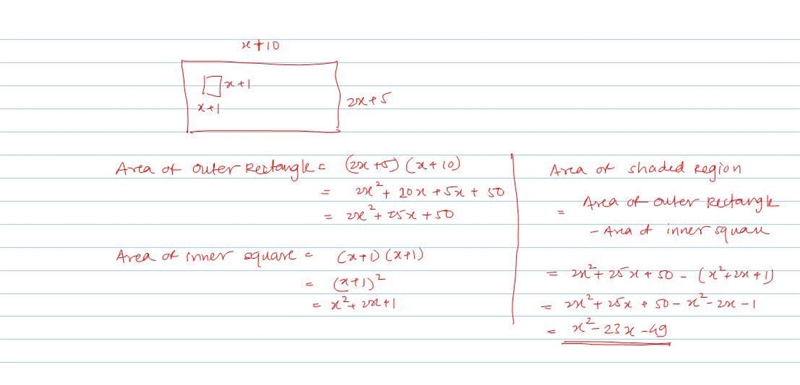 x+10
x+1
x+1
2x+5
Area of outer Rectangle = (2x+5) (x+10)
= 2x²+ 20x+5x + 50
= 2x²+25x+50
Area of inner square = (x+1) (x+1)
= (x+1)²
= x²+2x+1
Area of shaded region
= Area of outer Rectangle
- Area of inner square
= 2x²+25x+50 - (x²+2x+1)
= 2x²+25x + 50 - x²-2x-1
= x²-23x-49